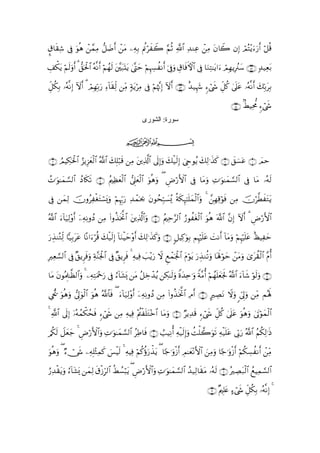 قُلْ أَرَءَيْتُمْ إِن كَانَ مِنْ عِندِ ٱللَّهِ ثُمَّ كَفَرْتُم بِهِۦ مَنْ أَضَلُّ مِمَّنْ هُوَ فِى شِقَاقٍۭ
بَعِيدٍ ۝ سَنُرِيهِمْ ءَايَـٰتِنَا فِى ٱلْـَٔافَاقِ وَفِىٓ أَنفُسِهِمْ حَتَّىٰ يَتَبَيَّنَ لَهُمْ أَنَّهُ ٱلْحَقُّ ۗ أَوَلَمْ يَكْفِ
بِرَبِّكَ أَنَّهُۥ عَلَىٰ كُلِّ شَىْءٍ شَهِيدٌ ۝ أَلَآ إِنَّهُمْ فِى مِرْيَةٍ مِّن لِّقَآءِ رَبِّهِمْ ۗ أَلَآ إِنَّهُۥ بِكُلِّ
شَىْءٍ مُّحِيطٌۢ ۝
سورة: الشورى
بِسْمِ ٱللَّهِ ٱلرَّحْمَـٰنِ ٱلرَّحِيمِ
حمٓ ۝ عٓسٓقٓ ۝ كَذَٰلِكَ يُوحِىٓ إِلَيْكَ وَإِلَى ٱلَّذِينَ مِن قَبْلِكَ ٱللَّهُ ٱلْعَزِيزُ ٱلْحَكِيمُ ۝
لَهُۥ مَا فِى ٱلسَّمَـٰوَٰتِ وَمَا فِى ٱلْأَرْضِ ۖ وَهُوَ ٱلْعَلِىُّ ٱلْعَظِيمُ ۝ تَكَادُ ٱلسَّمَـٰوَٰتُ
يَتَفَطَّرْنَ مِن فَوْقِهِنَّ ۚ وَٱلْمَلَـٰٓئِكَةُ يُسَبِّحُونَ بِحَمْدِ رَبِّهِمْ وَيَسْتَغْفِرُونَ لِمَن فِى
ٱلْأَرْضِ ۗ أَلَآ إِنَّ ٱللَّهَ هُوَ ٱلْغَفُورُ ٱلرَّحِيمُ ۝ وَٱلَّذِينَ ٱتَّخَذُوا۟ مِن دُونِهِۦٓ أَوْلِيَآءَ ٱللَّهُ
حَفِيظٌ عَلَيْهِمْ وَمَآ أَنتَ عَلَيْهِم بِوَكِيلٍ ۝ وَكَذَٰلِكَ أَوْحَيْنَآ إِلَيْكَ قُرْءَانًا عَرَبِيًّا لِّتُنذِرَ
أُمَّ ٱلْقُرَىٰ وَمَنْ حَوْلَهَا وَتُنذِرَ يَوْمَ ٱلْجَمْعِ لَا رَيْبَ فِيهِ ۚ فَرِيقٌ فِى ٱلْجَنَّةِ وَفَرِيقٌ فِى ٱلسَّعِيرِ
۝ وَلَوْ شَآءَ ٱللَّهُ لَجَعَلَهُمْ أُمَّةً وَٰحِدَةً وَلَـٰكِن يُدْخِلُ مَن يَشَآءُ فِى رَحْمَتِهِۦ ۚ وَٱلظَّـٰلِمُونَ مَا
لَهُم مِّن وَلِىٍّ وَلَا نَصِيرٍ ۝ أَمِ ٱتَّخَذُوا۟ مِن دُونِهِۦٓ أَوْلِيَآءَ ۖ فَٱللَّهُ هُوَ ٱلْوَلِىُّ وَهُوَ يُحْىِ
ٱلْمَوْتَىٰ وَهُوَ عَلَىٰ كُلِّ شَىْءٍ قَدِيرٌ ۝ وَمَا ٱخْتَلَفْتُمْ فِيهِ مِن شَىْءٍ فَحُكْمُهُۥٓ إِلَى ٱللَّهِ ۚ
ذَٰلِكُمُ ٱللَّهُ رَبِّى عَلَيْهِ تَوَكَّلْتُ وَإِلَيْهِ أُنِيبُ ۝ فَاطِرُ ٱلسَّمَـٰوَٰتِ وَٱلْأَرْضِ ۚ جَعَلَ لَكُم
مِّنْ أَنفُسِكُمْ أَزْوَٰجًا وَمِنَ ٱلْأَنْعَـٰمِ أَزْوَٰجًا ۖ يَذْرَؤُكُمْ فِيهِ ۚ لَيْسَ كَمِثْلِهِۦ شَىْءٌ ۖ وَهُوَ
ٱلسَّمِيعُ ٱلْبَصِيرُ ۝ لَهُۥ مَقَالِيدُ ٱلسَّمَـٰوَٰتِ وَٱلْأَرْضِ ۖ يَبْسُطُ ٱلرِّزْقَ لِمَن يَشَآءُ وَيَقْدِرُ
ۚ إِنَّهُۥ بِكُلِّ شَىْءٍ عَلِيمٌ ۝